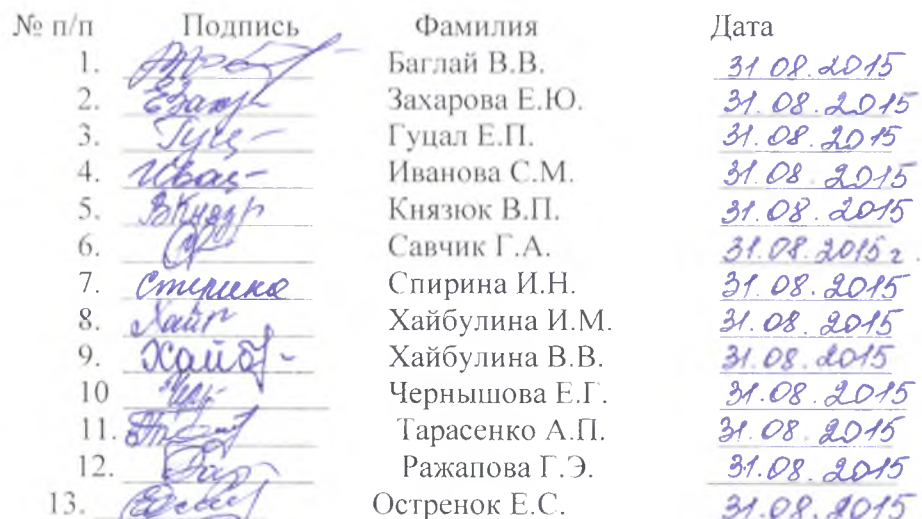 № п/п Подпись Фамилия Дата
1. Баглай В.В. 31.08.2015
2. Захарова Е.Ю. 31.08.2015
3. Гуц Гуцал Е.П. 31.08.2015
4. Иванова С.М. 31.08.2015
5. Князюк В.П. 31.08.2015
6. Савчик Г.А. 31.08.2015 г.
7. Спирина И.Н. 31.08.2015
8. Хайбулина И.М. 31.08.2015
9. Хайб Хайбулина В.В. 31.08.2015
10 Чернышова Е.Г. 31.08.2015
11. Тарасенко А.П. 31.08.2015
12. Ражапова Г.Э. 31.08.2015
13. Остренок Е.С. 31.08.2015